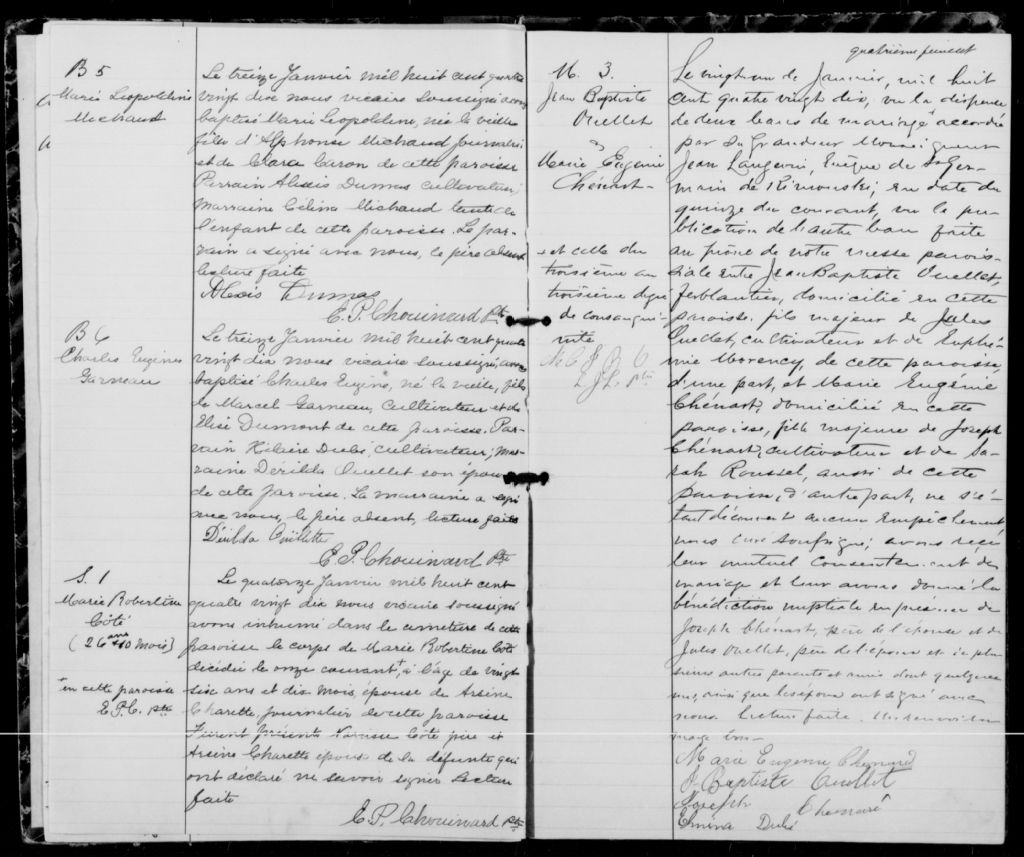 B 5
Marie Leopoldine
Michaud
Le treize Janvier mil huit cent quatre
vingt dix nous vicaire soussigné avons
baptisé Marie Leopoldine, née la veille
fille d'Alphonse Michaud journalier
et de Clara Caron de cette paroisse
Parrain Alexis Dumas cultivateur;
Marraine Célina Michaud tante de
l'enfant de cette paroisse. Le par-
rain a signé avec nous, le père absent
lecture faite
Alexis Dumas
E. P. Chouinard Ptre
B 6
Charles Eugène
Garneau
Le treize Janvier mil huit cent quatre
vingt dix nous vicaire soussigné, avons
baptisé Charles Eugène, né la veille, fils
de Marcel Garneau, cultivateur et de
Elise Dumont de cette paroisse. Par-
rain Hilaire Dubé, cultivateur; mar-
raine Derilda Ouellet son épouse
de cette paroisse. La marraine a signé
avec nous, le père absent, lecture faite
Derilda Ouillette
E. P. Chouinard Ptre
S. 1
Marie Robertine
Côté
(26 ans 10 mois)
+ en cette paroisse
E. P. C. Ptre
Le quatorze Janvier mil huit cent
quatre vingt dix nous vicaire soussigné
avons inhumé dans le cimetière de cette
paroisse le corps de Marie Robertine Côté
décédée le onze courant,+ à l'âge de vingt
six ans et dix mois, épouse de Arsène
Charette, journalier de cette paroisse
Furent présents Narcisse Côté père et
Arsène Charette époux de la défunte qui
ont déclaré ne savoir signer Lecture
faite
E. P. Chouinard Ptre
quatrième feuillet
M. 3.
Jean Baptiste
Ouellet
&
Marie Eugénie
Chénart
+ et celle du
troisième au
troisième degré
de consangui-
nité
Le vingt un de Janvier, mil huit
cent quatre vingt dix, vu la dispense
de deux bans de mariage+ accordée
par Sa Grandeur Monseigneur
Jean Langevin, Evêque de St Ger-
main de Rimouski, en date du
quinze du courant, vu la pu-
blication de l'autre ban faite
au prône de notre messe parois-
siale entre Jean Baptiste Ouellet,
ferblantier, domicilié en cette
paroisse, fils majeur de Jules
Ouellet, cultivateur et de Euphé-
mie Morency, de cette paroisse,
d'une part, et Marie Eugénie
Chénart, domiciliée en cette
paroisse, fille majeure de Joseph
Chénart, cultivateur et de Sa-
rah Roussel, aussi de cette
paroisse, d'autre part, ne s'é-
tant découvert aucun empêchement
nous curé soussigné, avons reçu
leur mutuel consentement de
mariage et leur avons donné la
bénédiction nuptiale en présence de
Joseph Chénart, père de l'épouse et de
Jules Ouellet, père de l'époux et de plu-
sieurs autres parents et amis dont quelques
uns, ainsi que les époux ont signé avec
nous. Lecture faite. Un renvoi en
marge bon
Marie Eugenie Chenard
J. Baptiste Ouellet
Joseph Chenard
Elmina Dubé